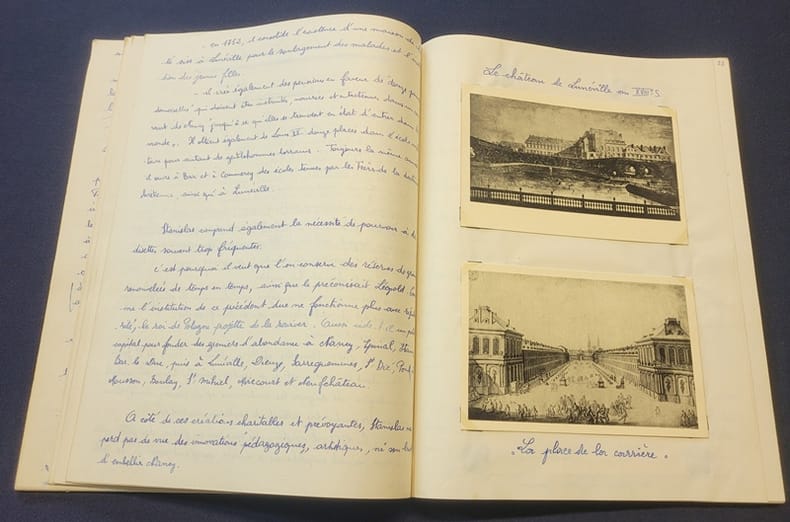 - en 1752, il consolide l'existence d'une maison de
à Lunéville pour le soulagement des malades et l'
tion des jeunes filles.
- il crée également des pensions en faveur de douze
demoiselles qui doivent être instruites, nourries et entretenues dans un
vent de Nancy jusqu'à ce qu'elles se trouvent en état d'entrer dans le
monde. Il obtient également de Louis XV douze places dans l'école
taire pour autant de gentilshommes lorrains. Toujours la même année
il ouvre à Bar et à Commercy des écoles tenues par les Frères de la doctrine
chrétienne, ainsi qu'à Lunéville.
Stanislas comprend également la nécessité de pourvoir à
disettes souvent trop fréquentes.
C'est pourquoi il veut que l'on conserve des réserves de
renouvelées de temps en temps, ainsi que le préconisait Léopold.
me l'institution de ce précédent duc ne fonctionne plus avec
rité, le roi de Pologne projette de la raviver. Aussi cède-t-il un
capital pour fonder des greniers d'abondance à Nancy, Epinal,
Bar le Duc, puis à Lunéville, Dieuze, Sarreguemines, St Dié, Pont
Mousson, Boulay, St Mihiel, Mirecourt et Neufchâteau.
A côté de ces créations charitables et prévoyantes, Stanislas ne
perd pas de vue des innovations pédagogiques, artistiques, ni son
d'embellir Nancy.
Le château de Lunéville au XVIIIe S.
"La place de la carrière"